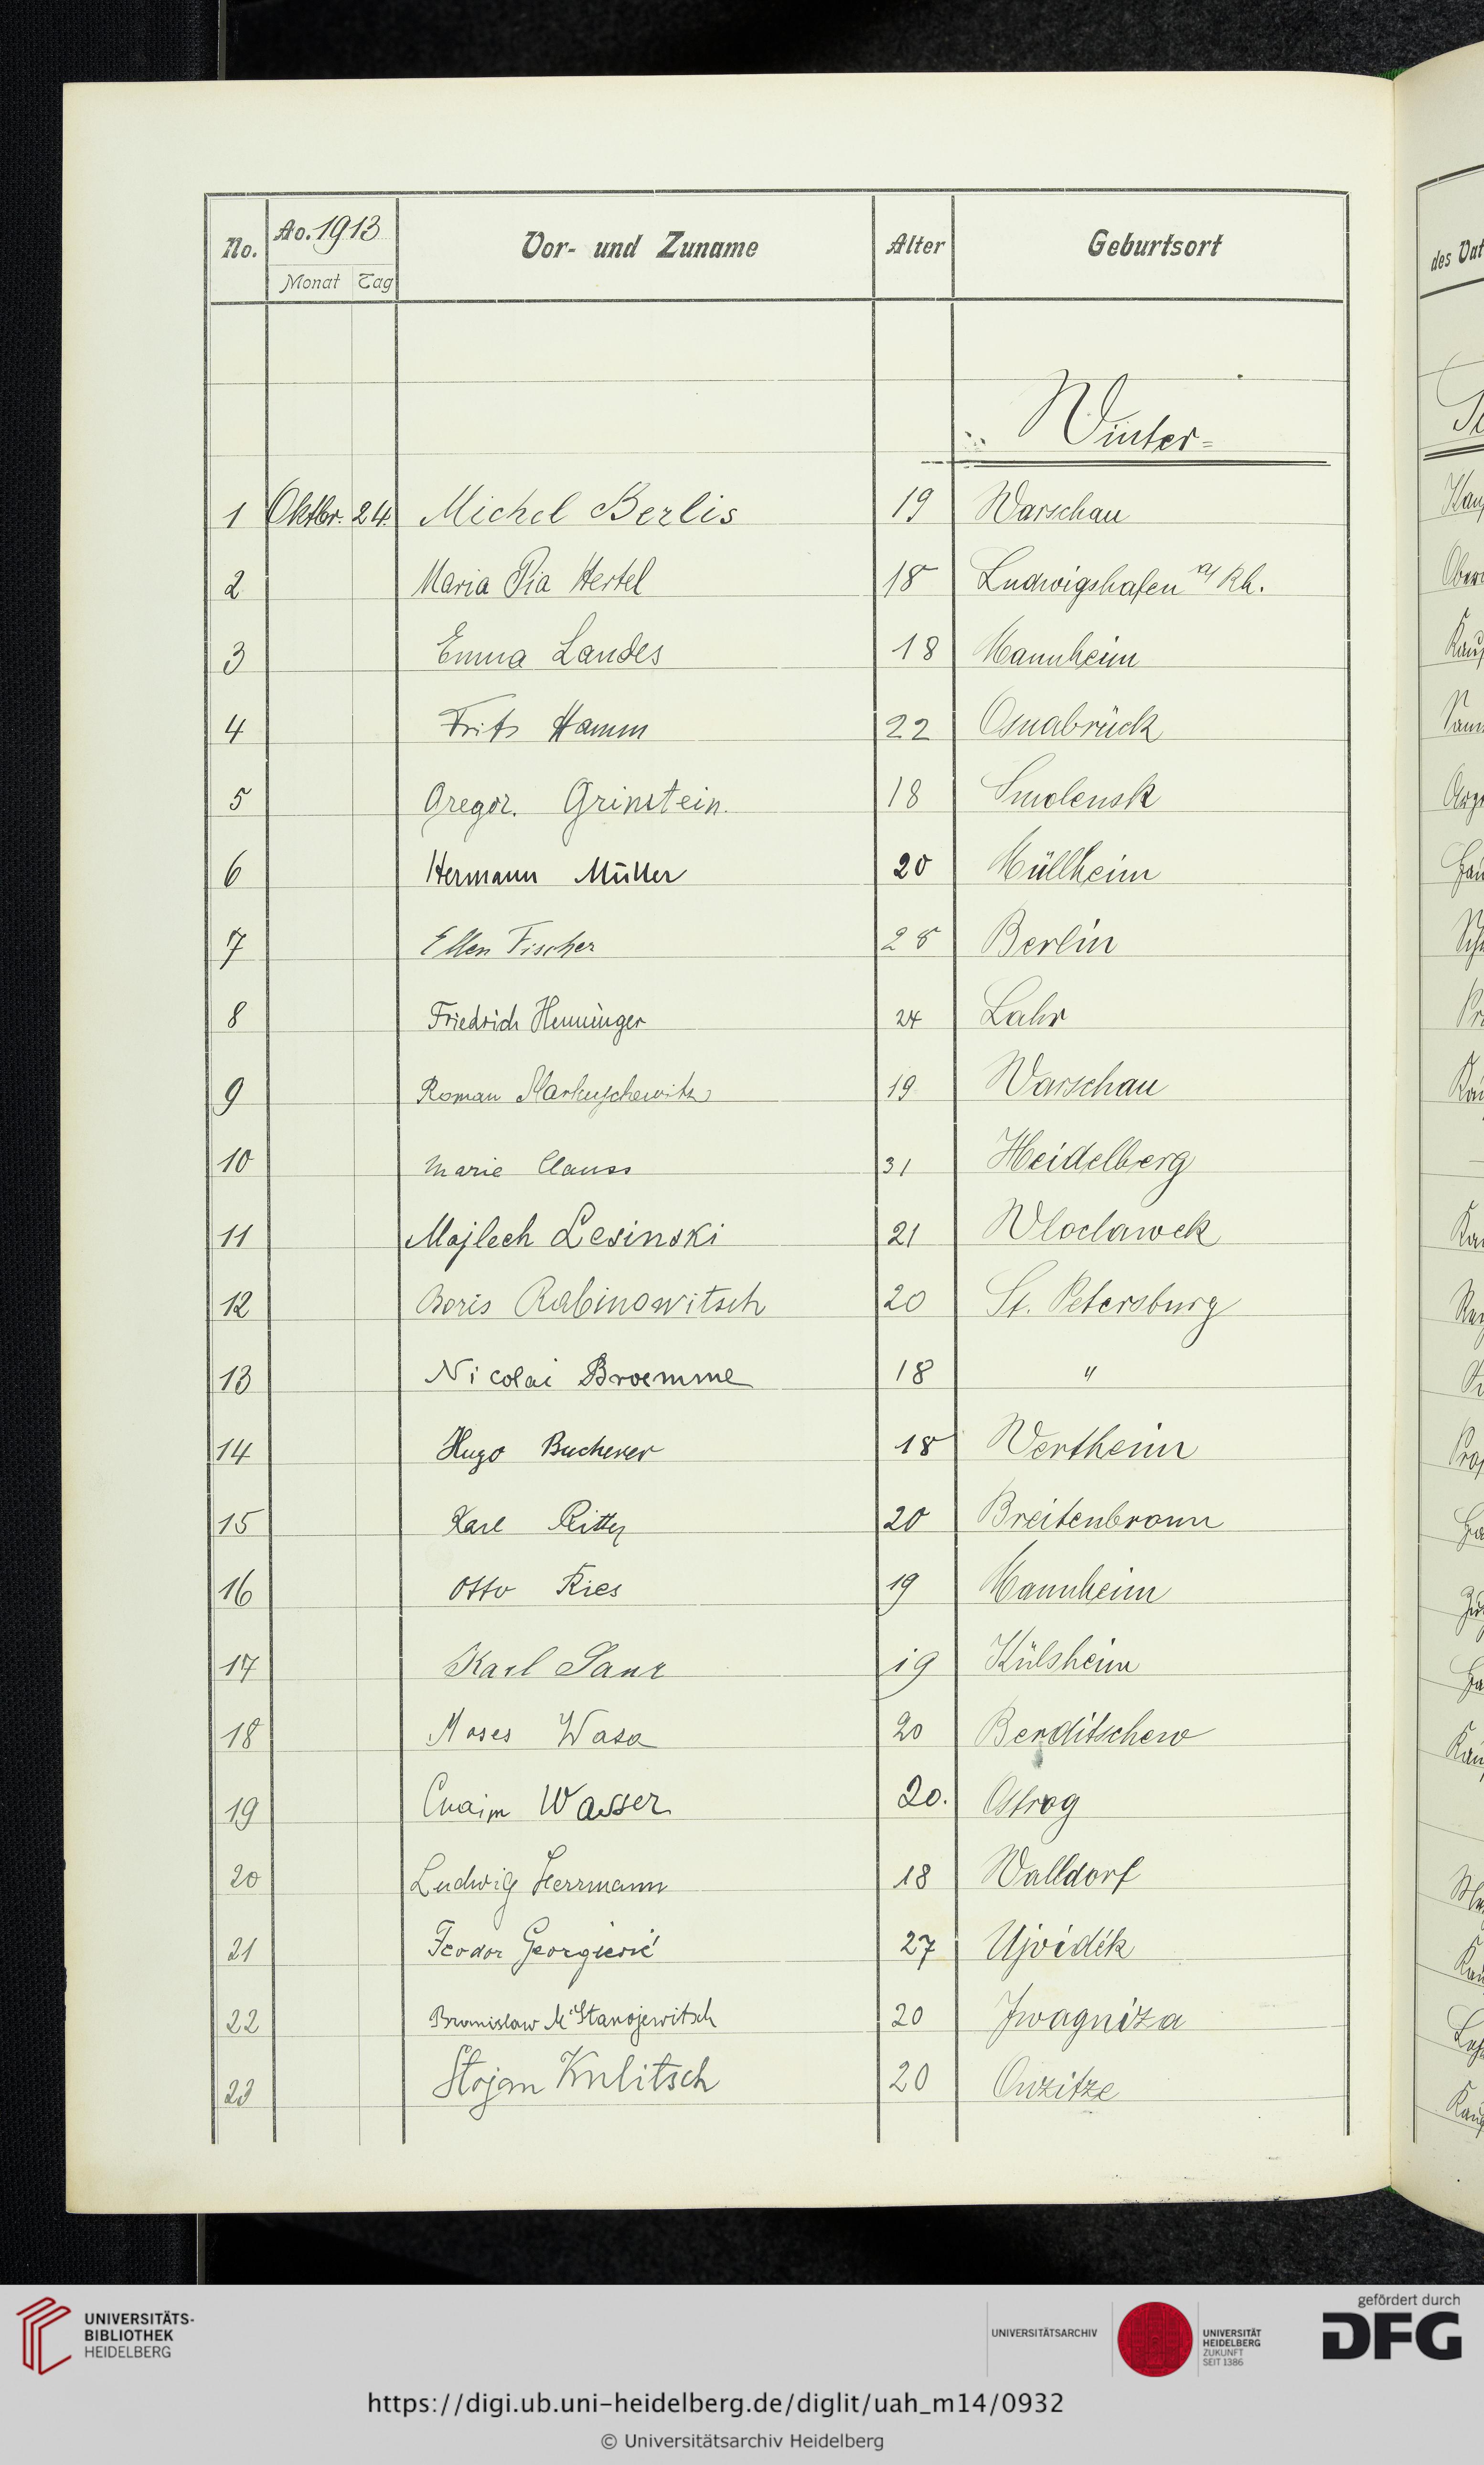 No. Ao. 1913 Vor- und Zuname Alter Geburtsort
Monat Tag
Winter=
1 Oktbr. 24. Michel Berlis 19 Warschau
2 Maria Pia Hertel 18 Ludwigshafen a/ Rh.
3 Emma Landes 18 Mannheim
4 Fritz Hamm 22 Osnabrück
5 Gregor. Grinstein. 18 Smolensk
6 Hermann Müller 20 Müllheim
7 Ellen Fischer 28 Berlin
8 Friedrich Henninger 24 Lahr
9 Roman Markuschewitz 19 Warschau
10 Marie Clauss 31 Heidelberg
11 Majlech Lesinski 21 Wloclawek
12 Boris Rabinowitsch 20 St. Petersburg
13 Nicolai Broemme 18 "
14 Hugo Bucherer 18 Wertheim
15 Karl 20 Breitenbronn
16 Otto Ries 19 Mannheim
17 Karl 19 Külsheim
18 Moses Wasa 20 Berditschew
19 Wasser 20. Ostrog
20 Ludwig Herrmann 18 Walldorf
21 Feodor Georgiević 27 Ujvidék
22 Stanojewitsch 20
23 Stojan 20
des Vat
UNIVERSITÄTS-
BIBLIOTHEK
HEIDELBERG
UNIVERSITÄTSARCHIV
UNIVERSITÄT
HEIDELBERG
ZUKUNFT
SEIT 1386
gefördert durch
DFG
https://digi.ub.uni-heidelberg.de/diglit/uah_m14/0932
© Universitätsarchiv Heidelberg